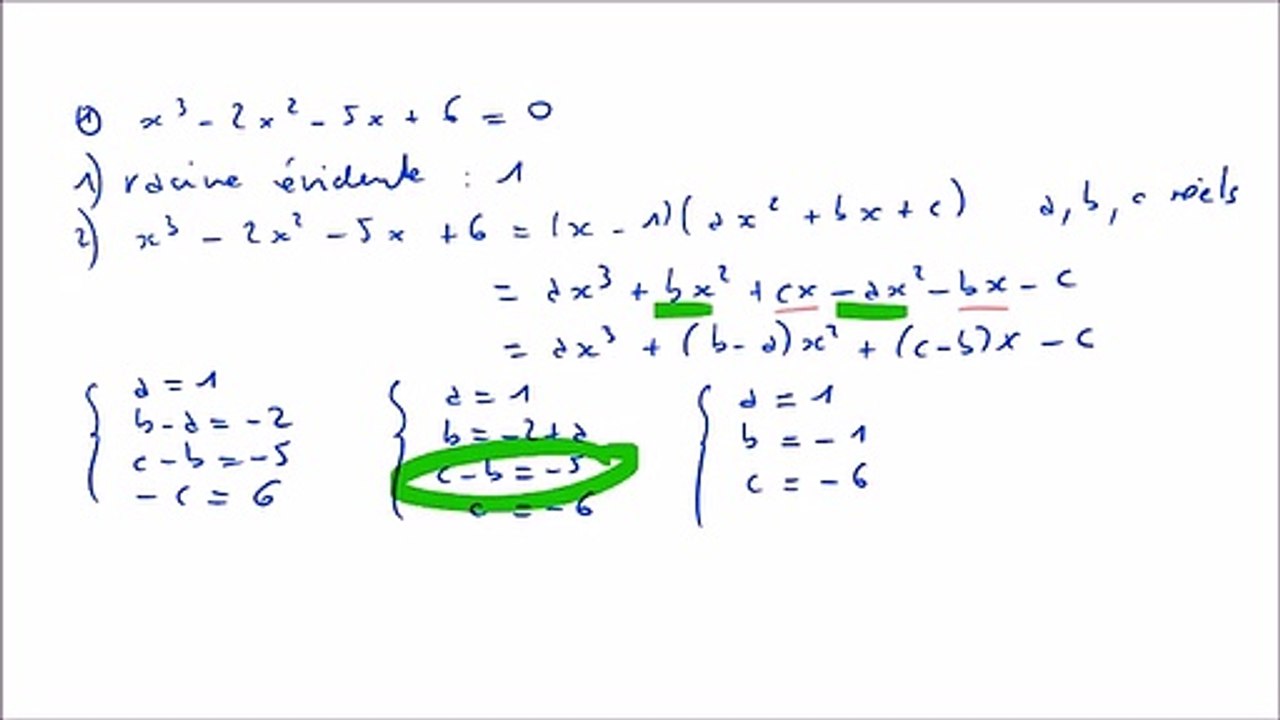 ① x³ - 2x² - 5x + 6 = 0
1) racine évidente : 1
2) x³ - 2x² - 5x + 6 = (x - 1)(ax² + bx + c) a, b, c réels
= ax³ + bx² + cx - ax² - bx - c
= ax³ + (b-a)x² + (c-b)x - c
a = 1
b-a = -2
c-b = -5
-c = 6
a = 1
b = -2+a
c-b = -5
c = -6
a = 1
b = -1
c = -6